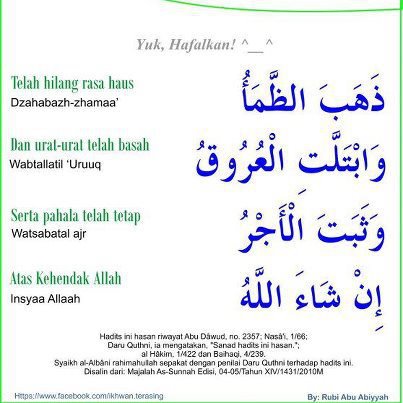 Yuk, Hafalkan! ^__^
Telah hilang rasa haus
Dzahabazh-zhamaa'
ذَهَبَ الظَّمَأُ
Dan urat-urat telah basah
Wabtallatil 'Uruuq
وَابْتَلَّتِ الْعُرُوقُ
Serta pahala telah tetap
Watsabatal ajr
وَثَبَتَ الْأَجْرُ
Atas Kehendak Allah
Insyaa Allaah
إِنْ شَاءَ اللَّهُ
Hadits ini hasan riwayat Abu Dâwud, no. 2357; Nasâ'i, 1/66;
Daru Quthni, ia mengatakan, "Sanad hadits ini hasan.";
al Hâkim, 1/422 dan Baihaqi, 4/239.
Syaikh al-Albâni rahimahullah sepakat dengan penilai Daru Quthni terhadap hadits ini.
Disalin dari: Majalah As-Sunnah Edisi, 04-05/Tahun XIV/1431/2010M
Https://www.facebook.com/ikhwan.terasing
By: Rubi Abu Abiyyah